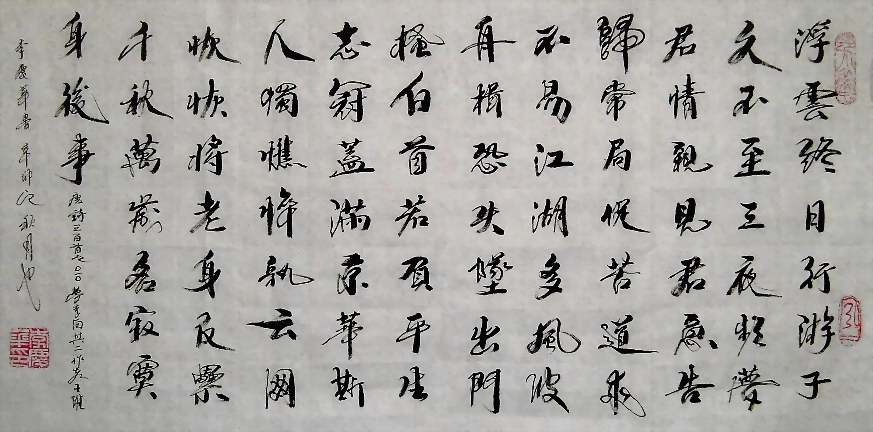 浮雲終日行游子
久不至三夜頻夢
君情親見君意告
歸常局促苦道來
不易江湖多風波
舟楫恐失墜出門
搔白首若負平生
志冠蓋滿京華斯
人獨憔悴孰云網
恢恢將老身反累
千秋萬歲名寂寞
身後事
唐詩三百首 夢李白其二作者
李慶華書 辛卯 秋月